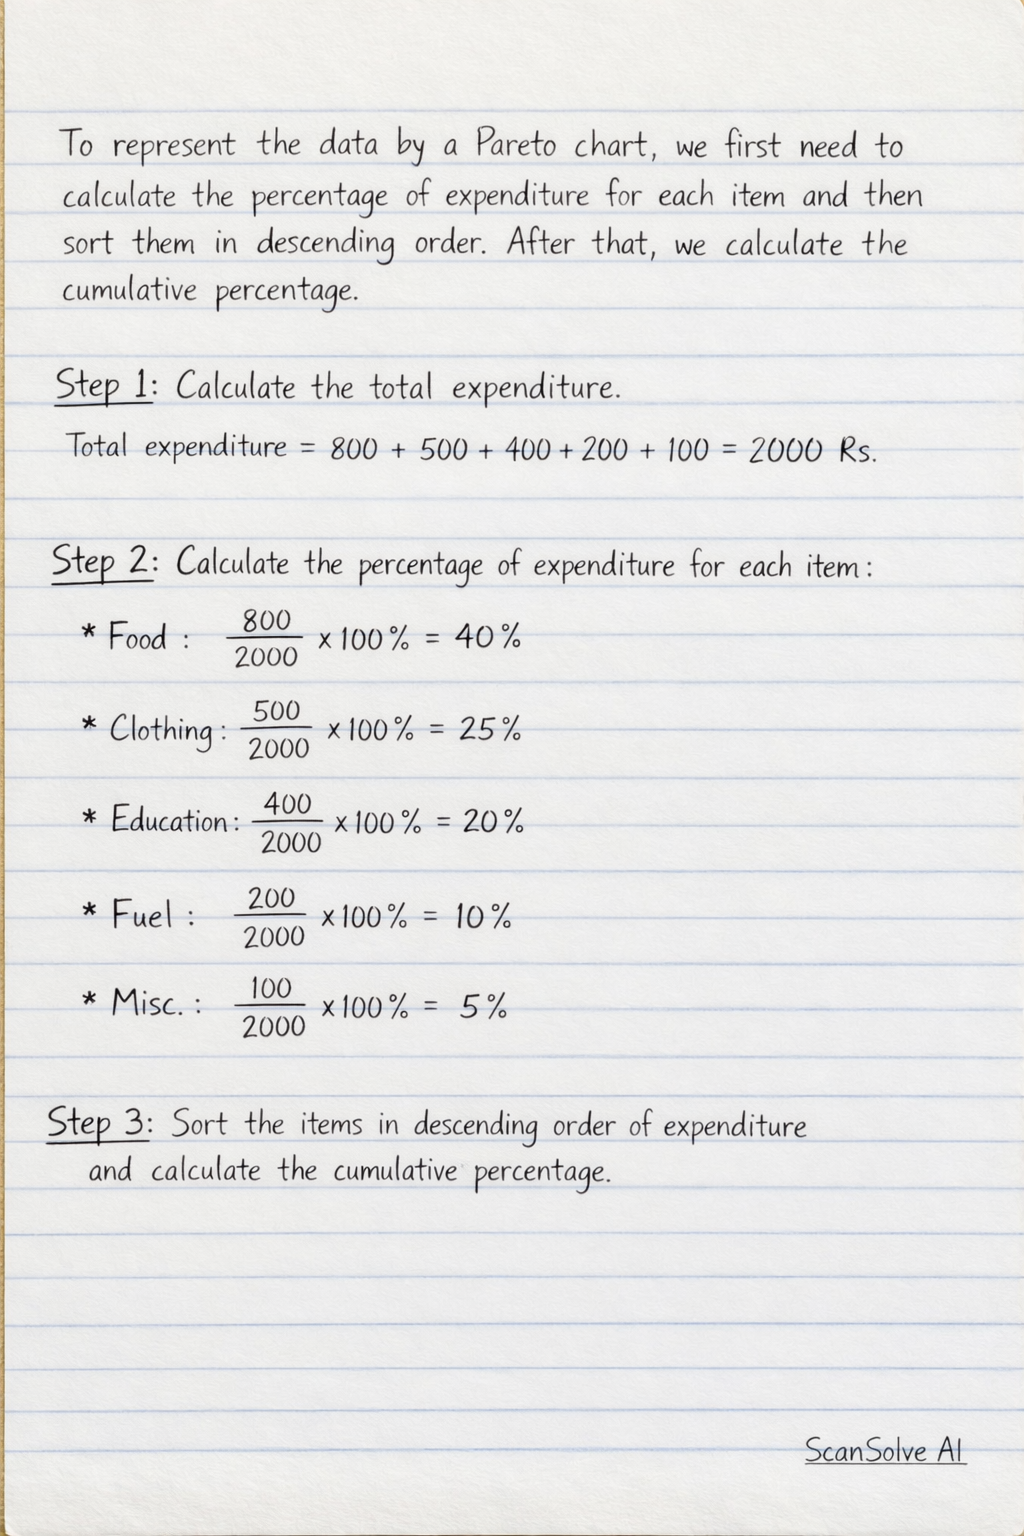 To represent the data by a Pareto chart, we first need to
calculate the percentage of expenditure for each item and then
sort them in descending order. After that, we calculate the
cumulative percentage.
Step 1: Calculate the total expenditure.
Total expenditure = 800 + 500 + 400 + 200 + 100 = 2000 Rs.
Step 2: Calculate the percentage of expenditure for each item:
* Food : 800/2000 x 100% = 40%
* Clothing: 500/2000 x 100% = 25%
* Education: 400/2000 x 100% = 20%
* Fuel : 200/2000 x 100% = 10%
* Misc. : 100/2000 x 100% = 5%
Step 3: Sort the items in descending order of expenditure
and calculate the cumulative percentage.
ScanSolve AI